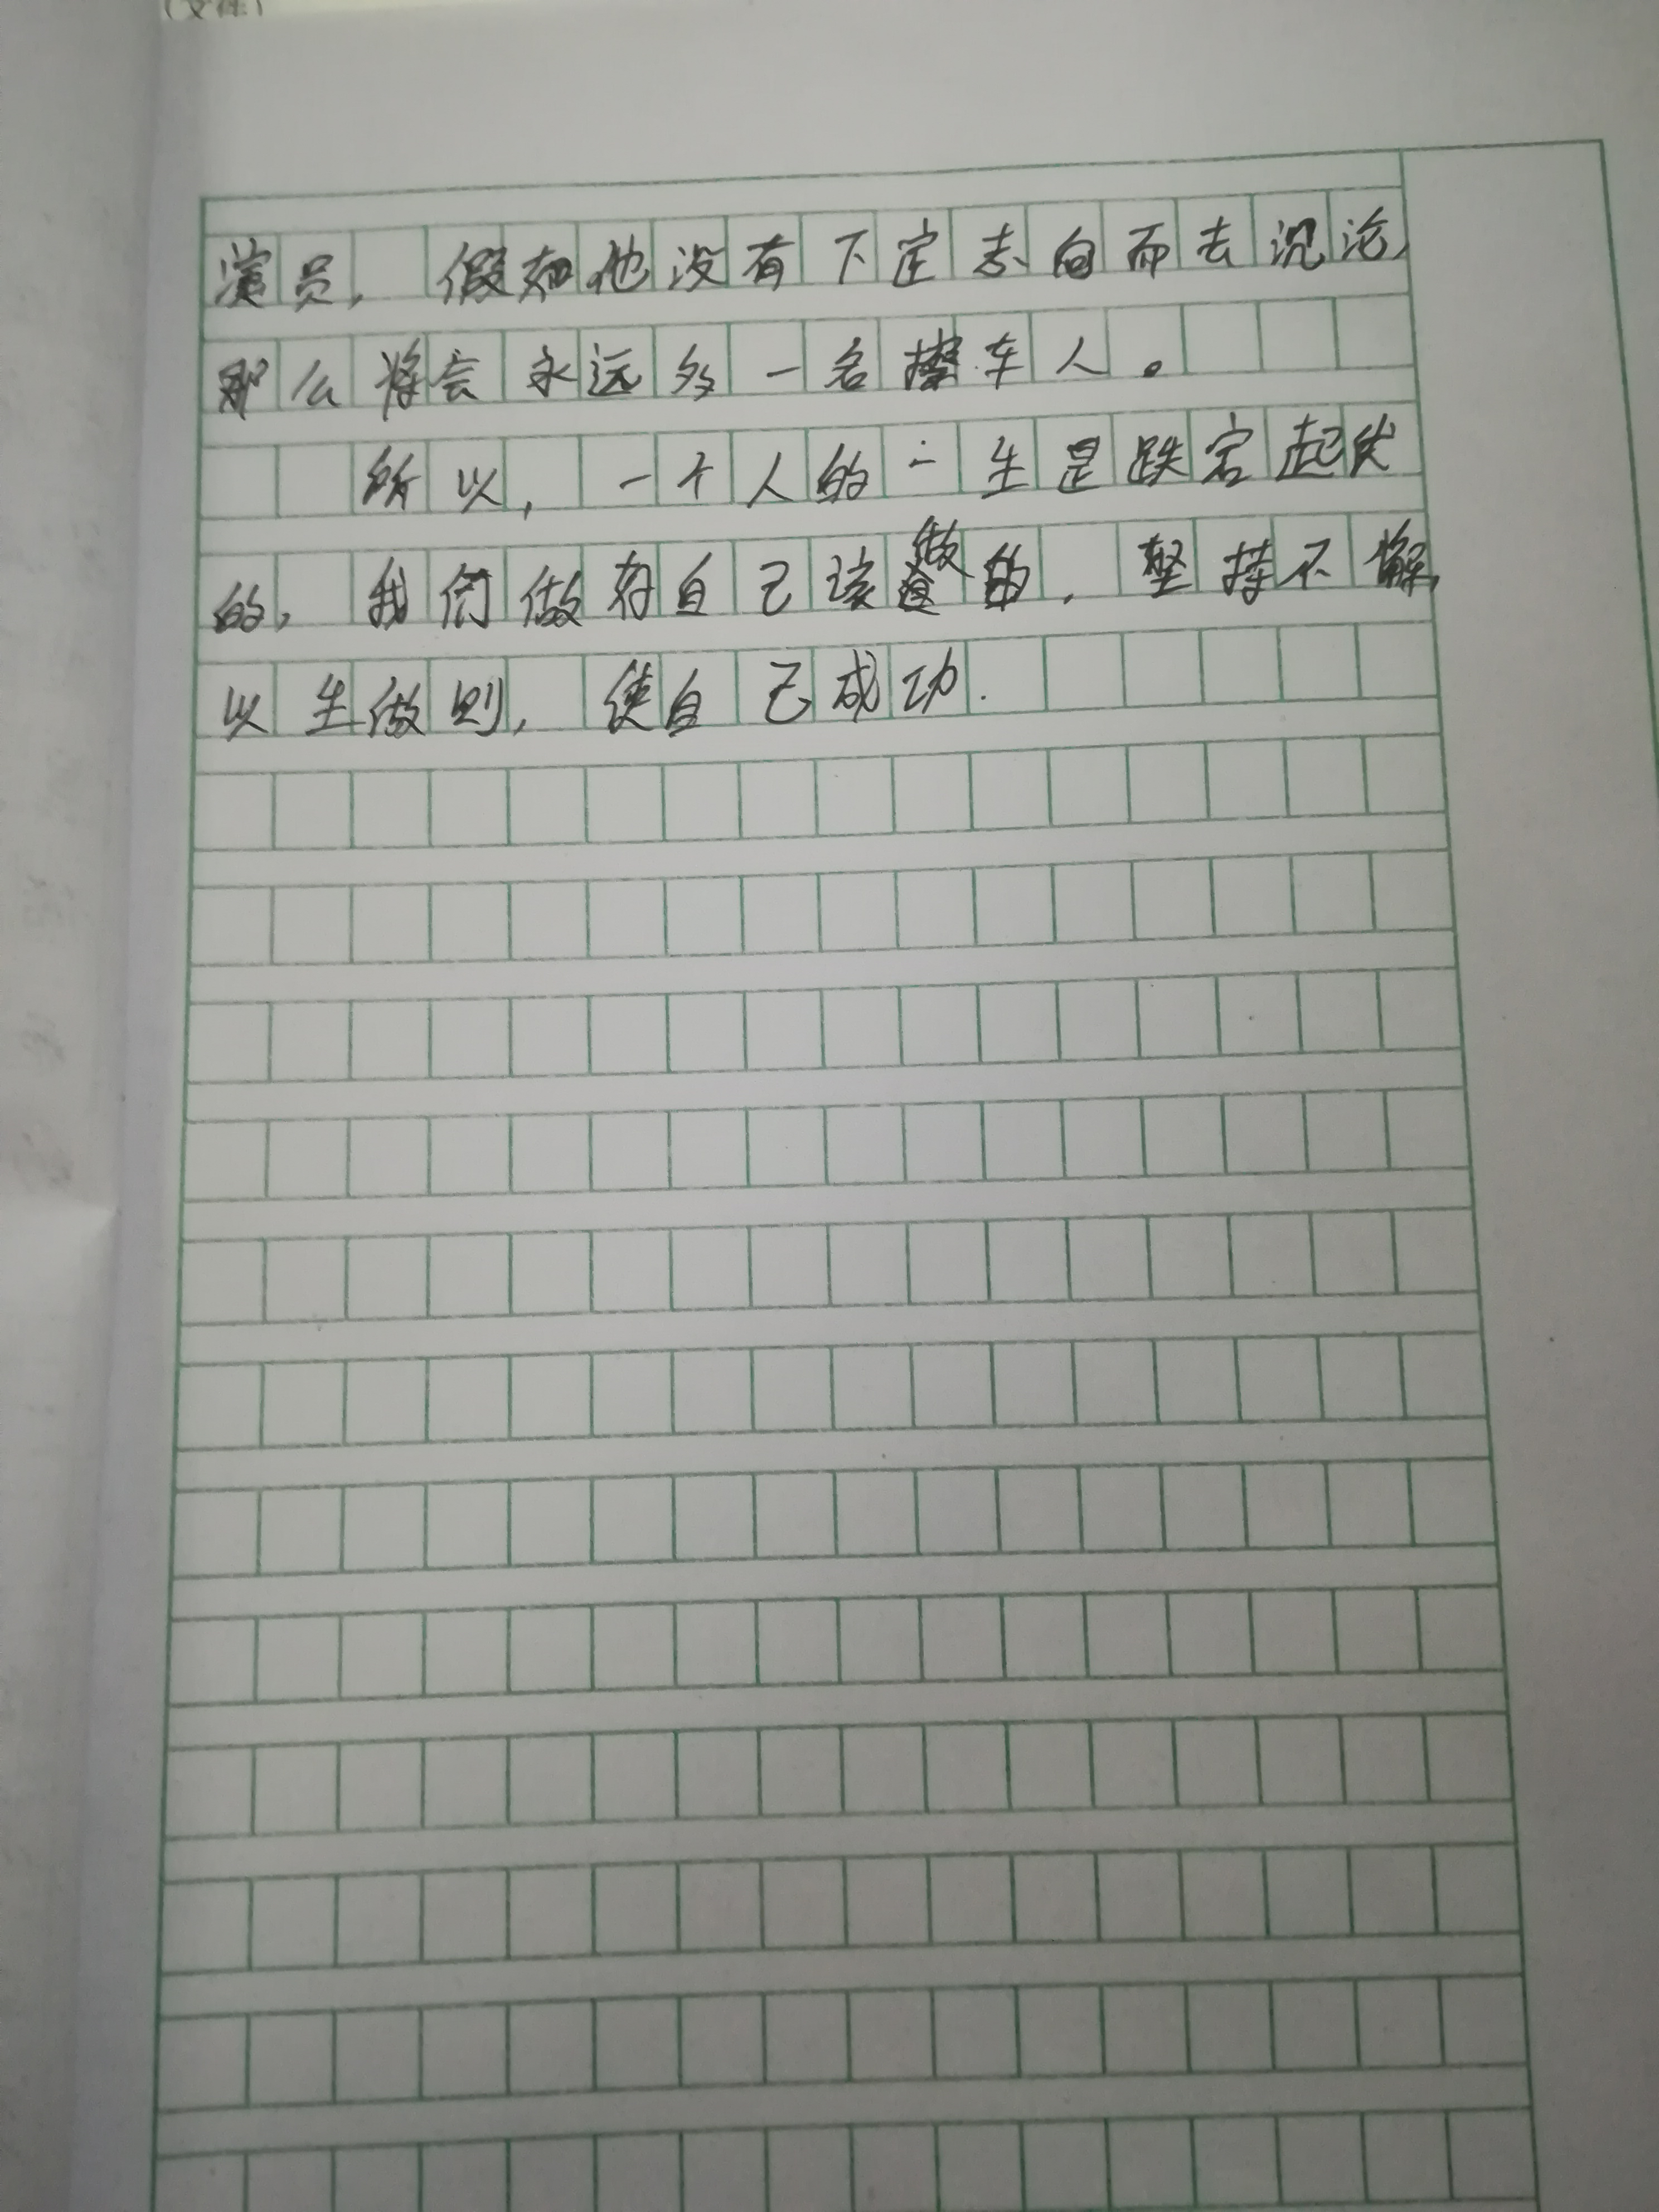 (文体)
演员,假如他没有下定志向而去沉沦,
那么将会永远多一名擦车人。
所以,一个人的一生是跌宕起伏
的,我们做好自己该做的,坚持不懈,
以生做则,使自己成功.